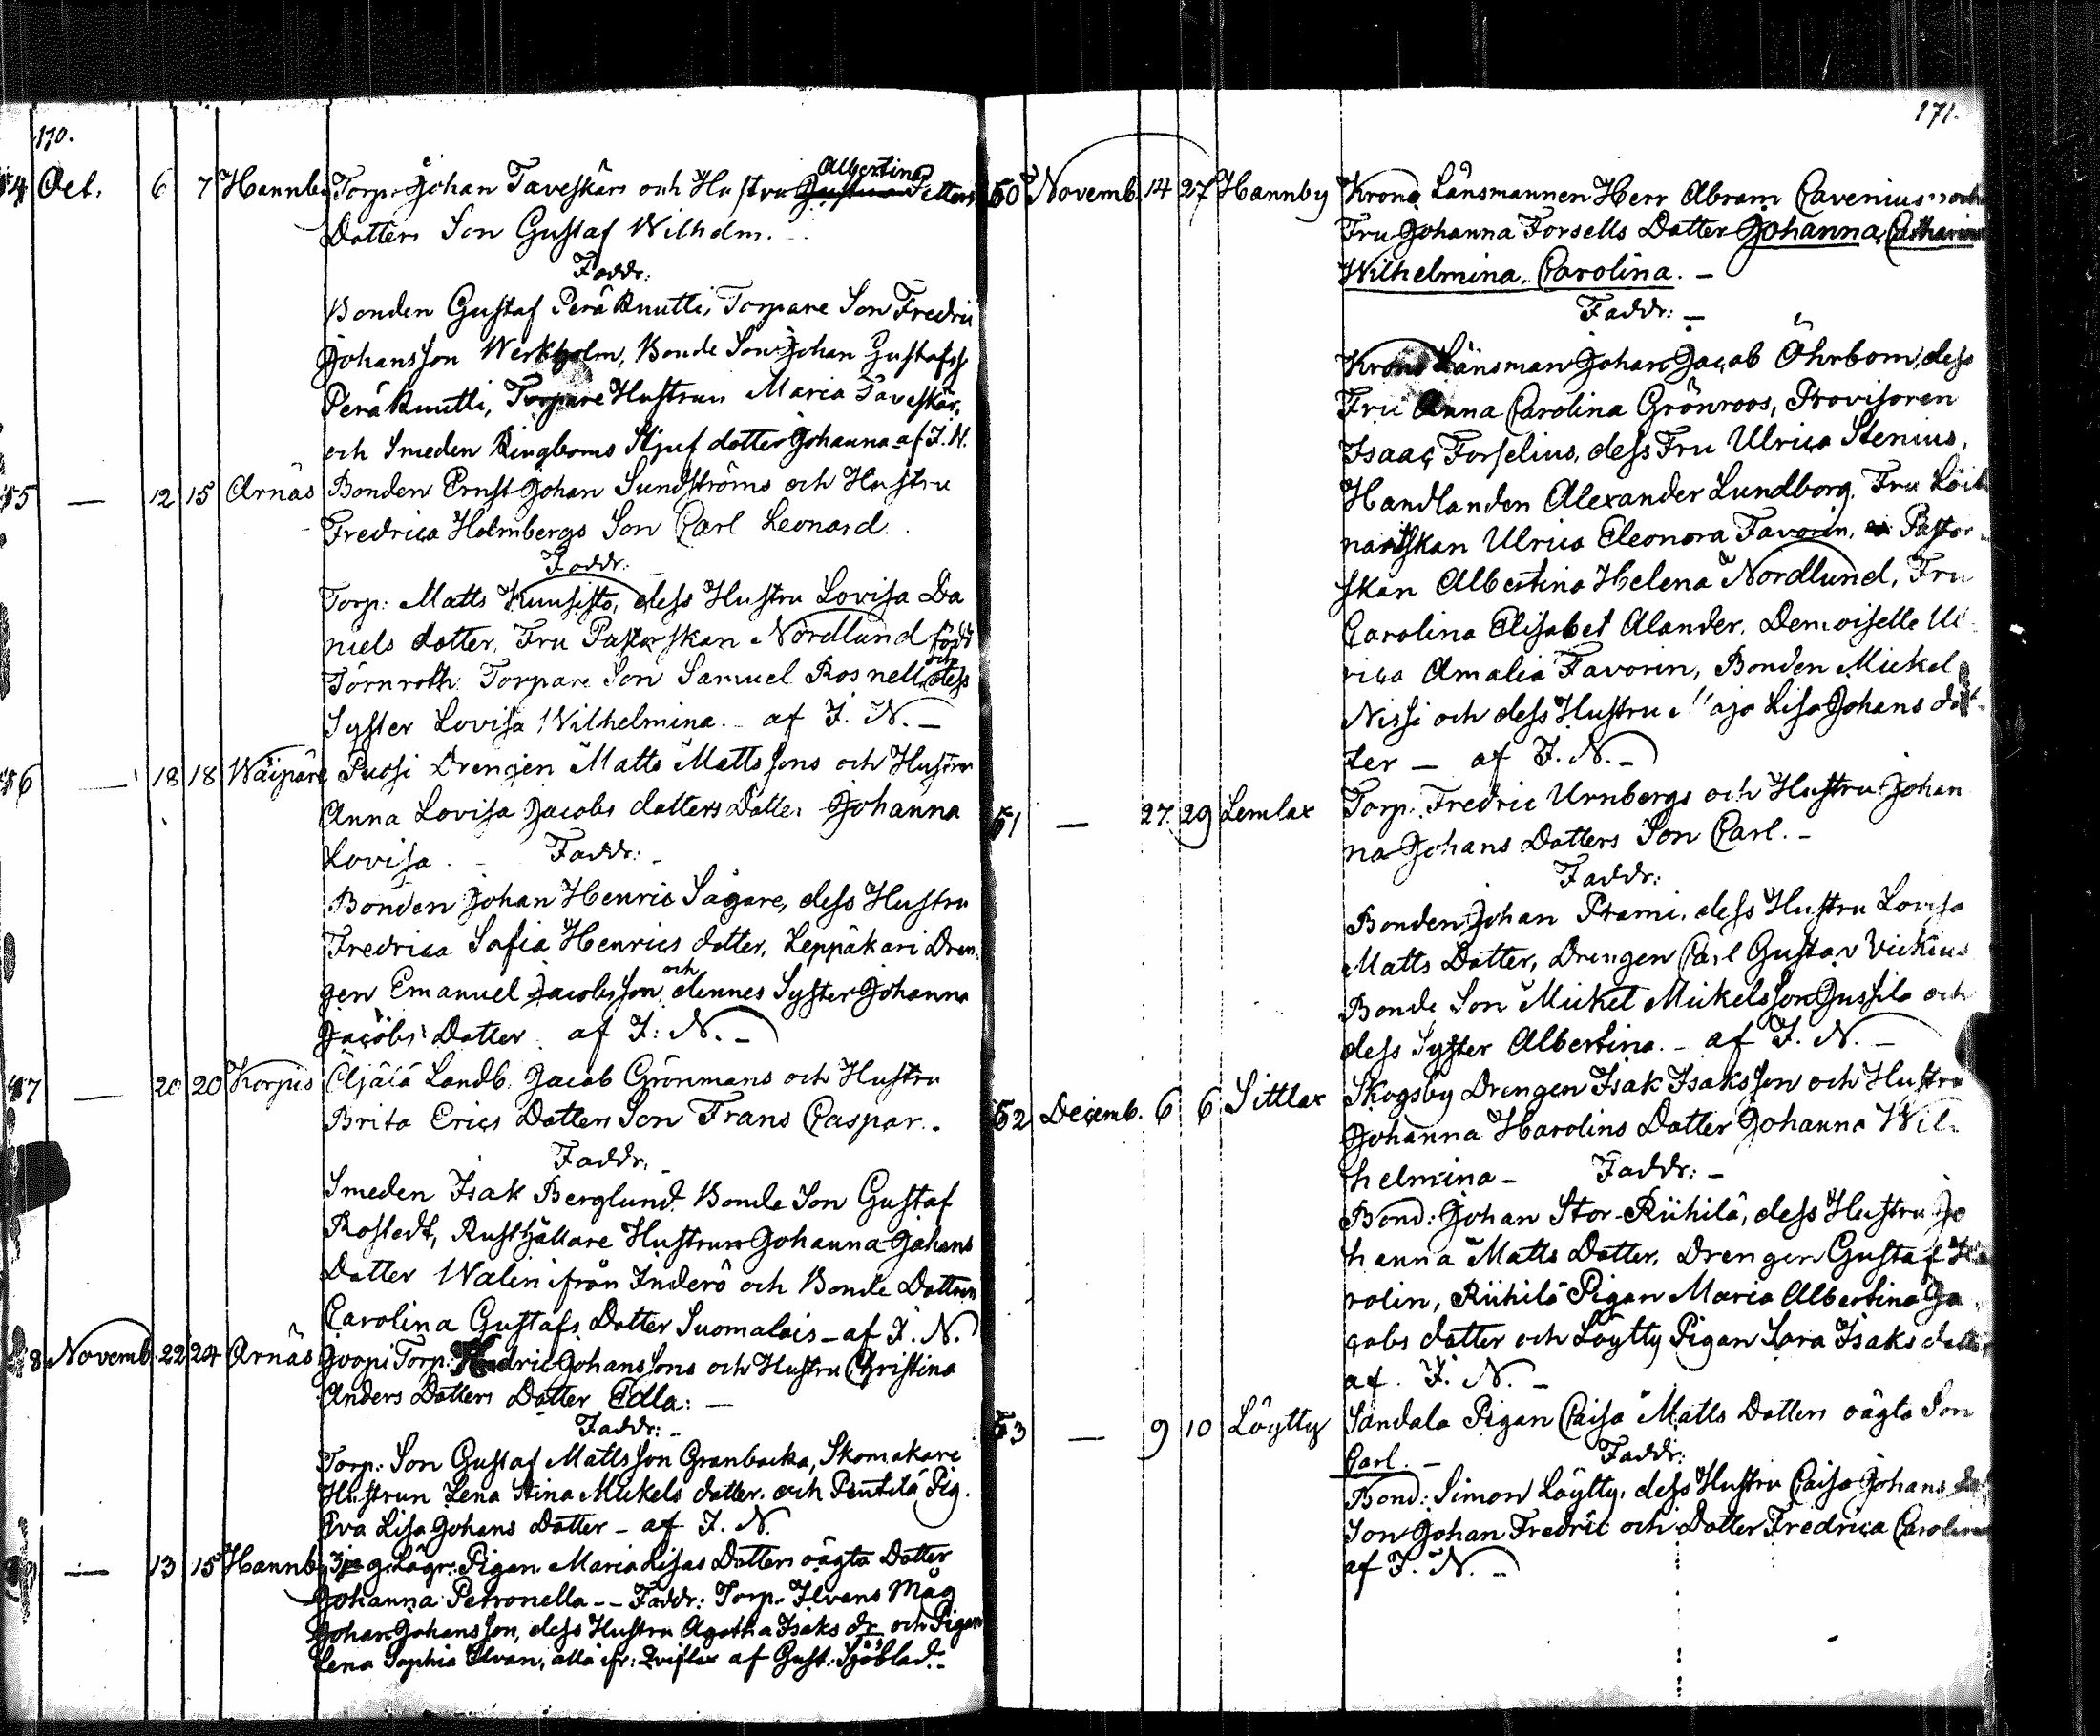 170.
54 Oct. 6 7 Hannby Torp. Johan Taveskärs och Hustru Albertina Petters
Dotters Son Gustaf Wilhelm.
Faddr:
Bonden Gustaf Peräknutti, Torpare Son Fredric
Johansson Werkholm, Bonde Son Johan Gustafss
Peräknutti, Torpare Hustrun Maria Taveskär,
och Smeden Ringboms Stjuf dotter Johanna af J. N.
— 12 15 Arnäs Bonden Ernst Johan Sundströms och Hustru
Fredrica Holmbergs Son Carl Leonard.
Faddr:
Torp: Matts Kuusisto, dess Hustru Lovisa Da
niels dotter, Fru Pastorskan Nordlund född
Törnroth Torpare Son Samuel Rosnell och dess
Syster Lovisa Wilhelmina. – af J. N. –
— 18 18 Waipäre Puosi Drengen Matts Mattssons och Hustru
Anna Lovisa Jacobs dotters Dotter Johanna
Lovisa. – Faddr: –
Bonden Johan Henric Sågare, dess Hustru
Fredrica Sofia Henrics dotter, Leppäkari Dren
gen Emanuel Jacobsson, och dennes Syster Johanna
Jacobs Dotter. af J: N. –
— 20 20 Korpis Äijälä Landb. Jacob Grönmans och Hustru
Brita Erics Dotters Son Frans Caspar. –
Faddr. –
Smeden Isak Berglund. Bonde Son Gustaf
Rostedt, Rusthållare Hustrun Johanna Johans
Dotter Walin ifrån Inderö och Bonde Dottren
Carolina Gustafs Dotter Suomalais – af J. N.
8 Novemb. 22 24 Arnäs Joopi Torp. Johanssons och Hustru Christina
Anders Dotters Dotter Edla: —
Faddr: –
Torp: Son Gustaf Mattsson Granbacka, Skomakare
Hustrun Lena Stina Mickels dotter. och Pentilä Pig.
Eva Lisa Johans Dotter – af J. N.
— 13 15 Hannby Lägr: Pigan Maria Lisas Dotters oägta Dotter
Johanna Petronella – – Faddr: Torp. Ilvans Måg
Johan Johansson, dess Hustru Agatha Isaks dr och Pigan
Lena Sophia Ilvan, alla ifr: af Gust. Sjöblad. –
171.
50 Novemb. 14 27 Hannby Krono Länsmannen Herr Abram Cavenius's och
Fru Johanna Forsells Dotter Johanna, Catharina
Wilhelmina, Carolina. –
Faddr: –
Krono Länsman Johan Jacob Öhrbom, dess
Fru Anna Carolina Grönroos, Provisoren
Isaac Forselius, dess Fru Ulrica Stenius,
Handlanden Alexander Lundborg. Fru Löit
nantskan Ulrica Eleonora Favorin, Pastor
skan Albertina Helena Nordlund, Fru
Carolina Elisabet Alander. Demoiselle Ul
rica Amalia Favorin, Bonden Mickel
Nissi och dess Hustru Maja Lisa Johans dot
ter – af J. N. –
51 — 27. 29 Lemlax Torp. Fredric Urnbergs och Hustru Johan
na Johans Dotters Son Carl. –
Faddr:
Bonden Johan Prami, dess Hustru Lovisa
Matts Dotter, Drengen Carl Gustav Vickius
Bonde Son Mickel Mickelsson Jussila och
dess Syster Albertina. – af J. N. –
52 Decemb. 6 6 Sittlax Skogsby Drengen Isak Isaksson och Hustru
Johanna Harolins Dotter Johanna Wil
helmina – Faddr: –
Bond: Johan Stor-Riihilä, dess Hustru Jo
hanna Matts Dotter, Drengen Gustaf Ha
rolin, Riihilä Pigan Maria Albertina Ja
cobs dotter och Löytty Pigan Sara Isaks dotter
af. J. N. –
53 — 9 10 Löytty Sandala Pigan Caisa Matts Dotters oägta Son
Carl. – Faddr:
Bond: Simon Löytty, dess Hustru Caisa Johans dot
Son Johan Fredric och Dotter Fredrica Carolina
af J. N. –